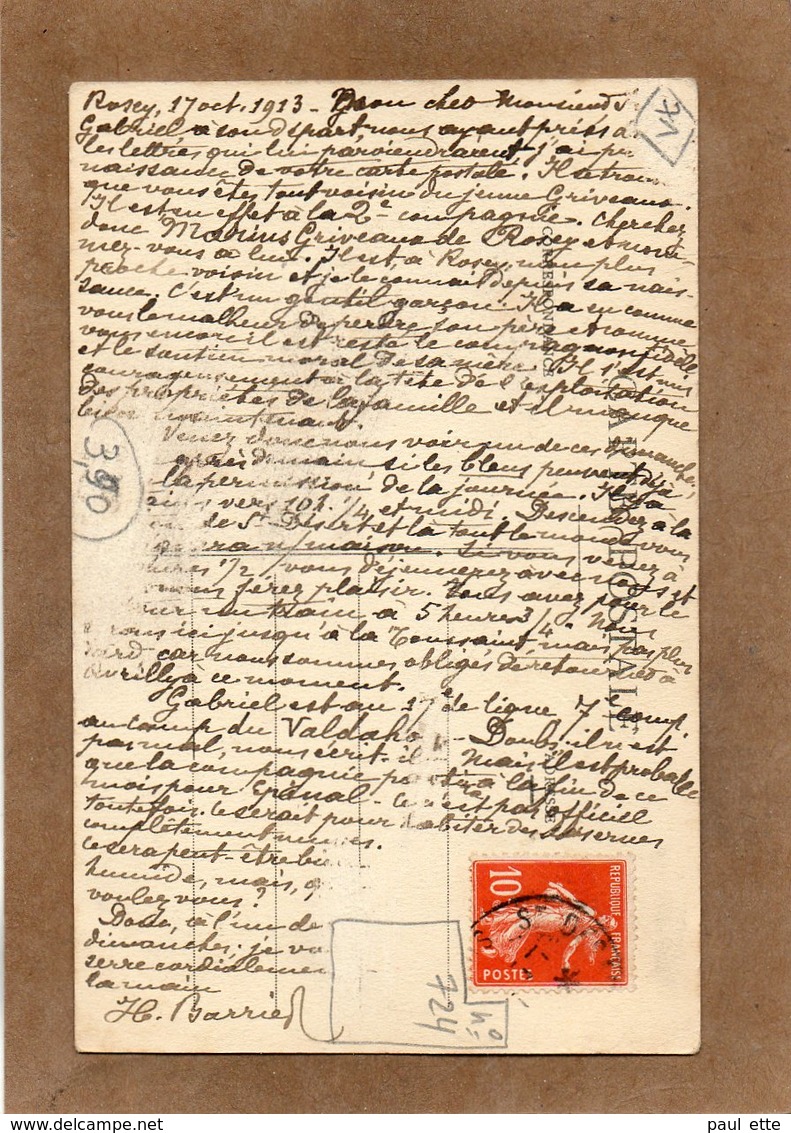 Rosey, 17 oct. 1913 - Mon cher Monsieur
Gabriel à son départ, nous ayant priés
les lettres qui lui parviendraient j'ai
naissance de votre carte postale. Il se
que vous êtes tout voisin du jeune Griveaux.
Il est en effet à la 2e compagnie. Cherchez
donc Marius Griveaux de Rosey et nom-
mez-vous à lui. Il est à Rosey, mon plus
proche voisin et je le connais depuis sa nais-
sance. C'est un gentil garçon. Il a eu comme
vous le malheur de perdre son père et comme
vous encore il est resté le compagnon fidèle
et le soutien moral de sa mère. Il s'est mis
courageusement à la tête de l'exploitation
des propriétés de la famille et il manque
bien maintenant.
Venez donc nous voir un de ces dimanches,
après demain si les bleus peuvent déjà
la permission de la journée. Il y a
vers 10 h. 1/4 et midi. Descendez à la
de St Désert et là tout le monde vous
n/maison. Si vous venez à
1/2, vous déjeunerez avec nous et
nous ferez plaisir. Vous avez pour le
un train à 5 heures 3/4. Nous
ici jusqu'à la Toussaint mais pas plus
tard car nous sommes obligés de retourner à
Avrilly à ce moment.
Gabriel est au 17e de ligne 7e comp.
au camp du Valdahon - Doubs. il n'est
pas mal, nous écrit-il. Mais il est probable
que la compagnie partira à la fin de ce
mois pour Epinal - Ce n'est pas officiel
toutefois. Ce serait pour habiter des casernes
complètement neuves.
Ce sera peut-être bien
humide, mais, que
voulez vous ?
Donc, à l'un de
dimanches; je vous
serre cordialement
la main
H. Barrier
CORRESPONDANCE
CARTE POSTALE
ADRESSE
3,90
VX
No
724
10c
REPUBLIQUE FRANÇAISE
POSTES
paul ette